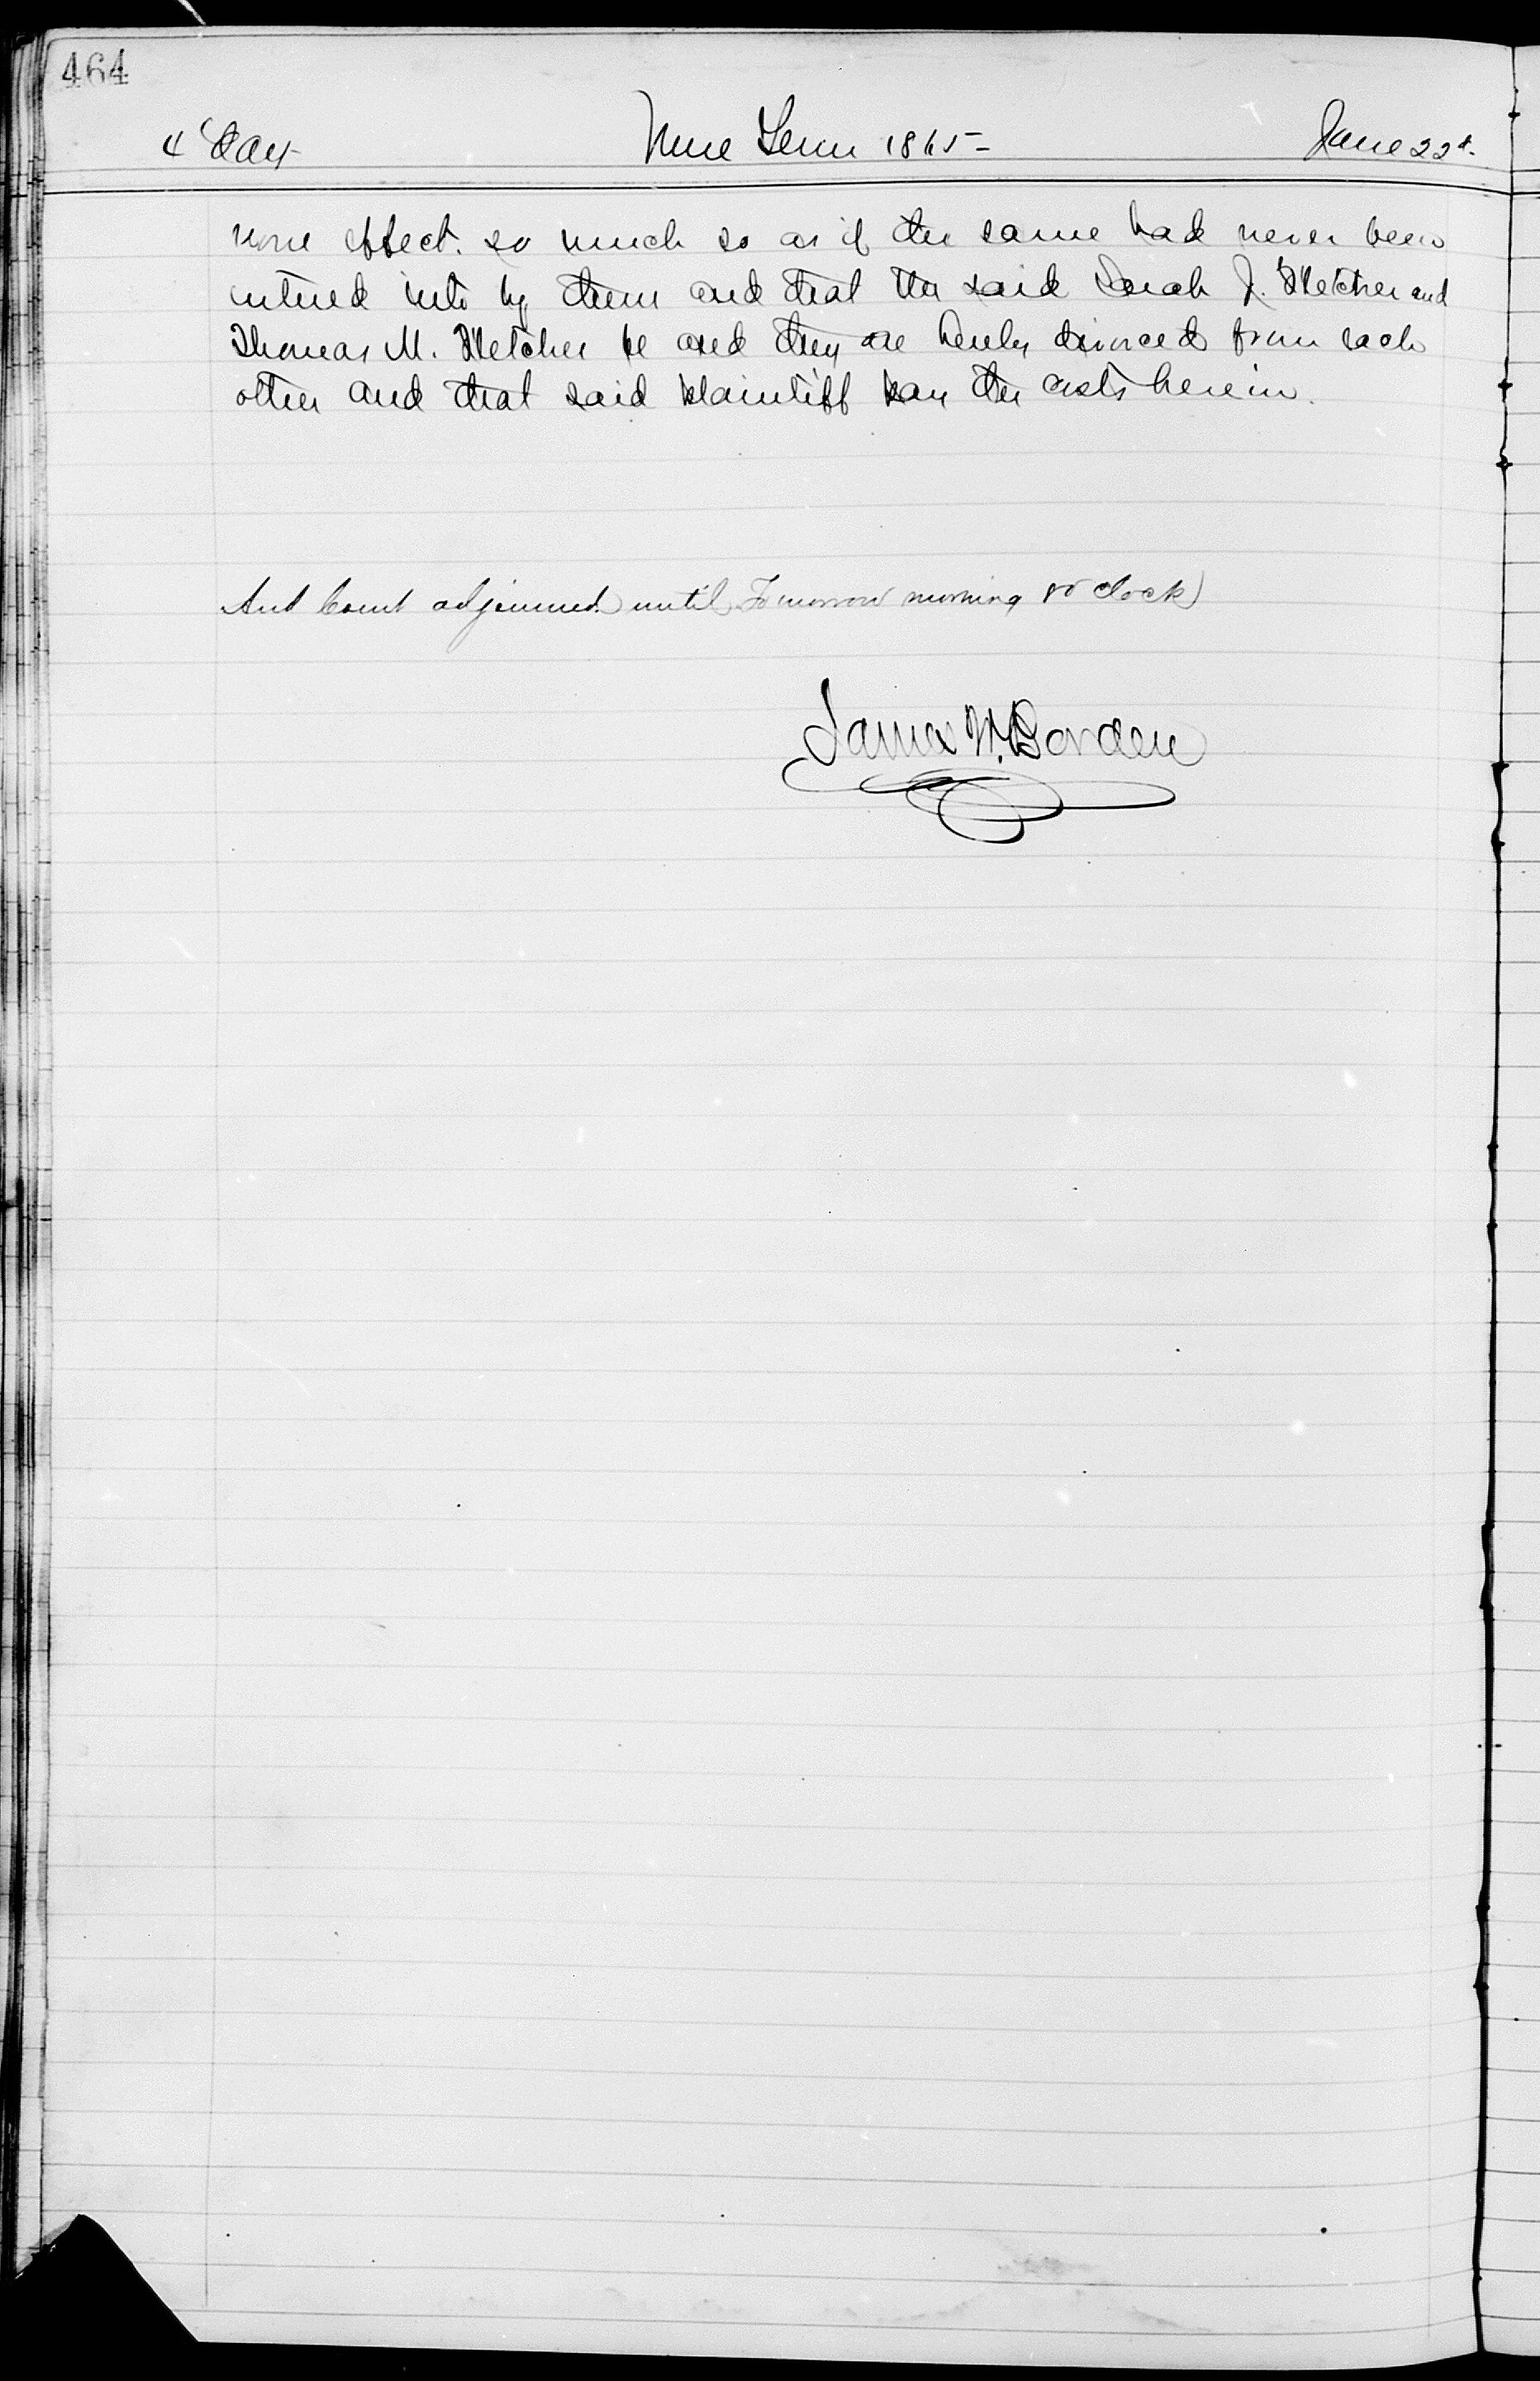 464
4" Day June Term 1865- June 22d.
none effect. so much so as if the same had never been
entered into by them and that the said Sarah J. Fletcher and
Thomas M. Fletcher be and they are hereby divorced from each
other and that said plaintiff pay the costs herein.
And Court adjourned until Tomorrow morning 8 o clock
James W. Borden